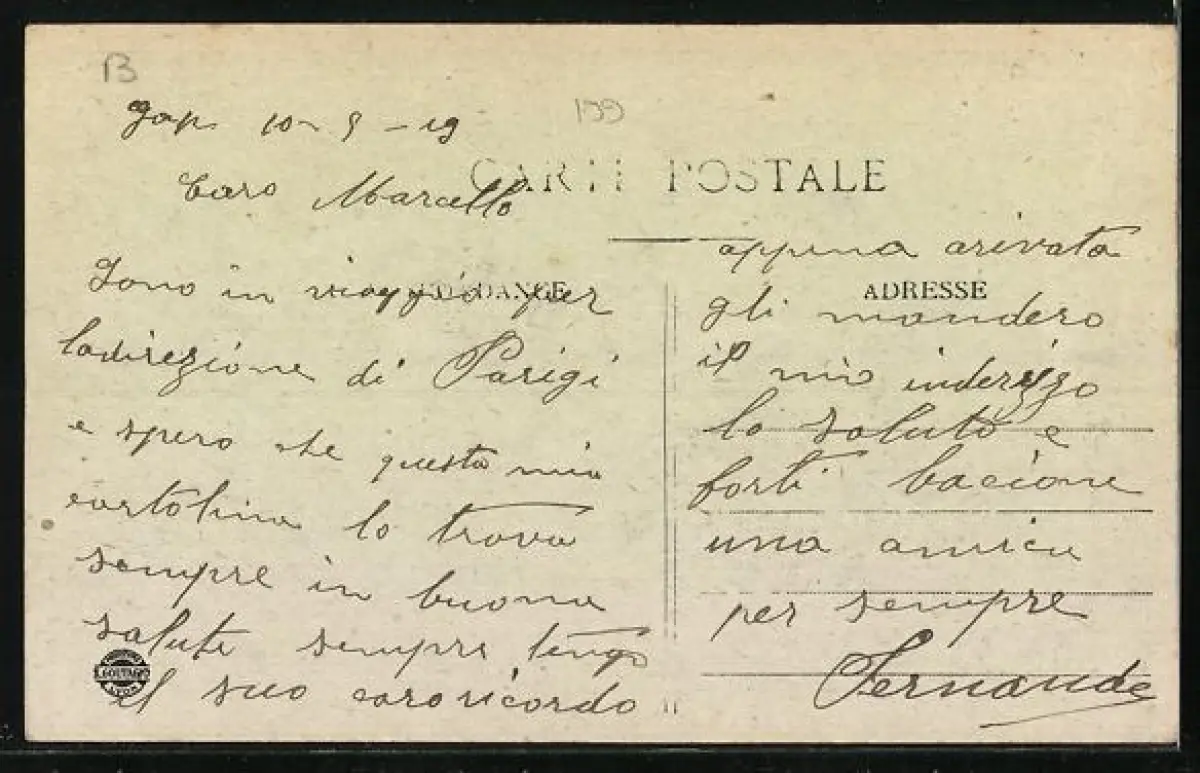 B
199
Gap 10-9-19
CARTE POSTALE
Caro Marcello
Sono in viaggio per
ladirezione di Parigi
e spero che questa mia
cartolina lo trova
sempre in buona
salute sempre tengo
il suo caro ricordo
ADRESSE
appena arivata
gli mandero
il mio inderizzo
lo saluto e
forti bacione
una amica
per sempre
Fernande
LYON